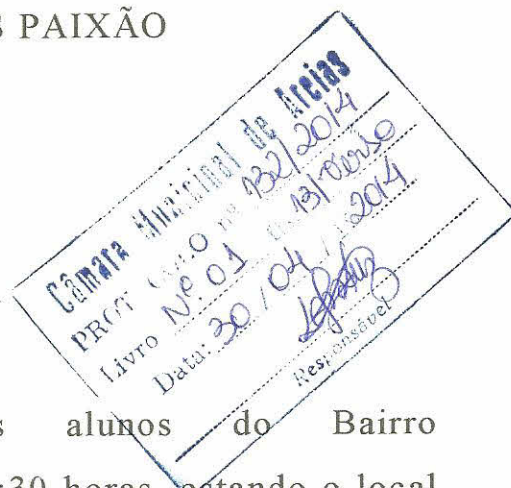 S PAIXÃO
Câmara Municipal de Areias
PROTOCOLO nº 132/2014
Livro Nº 01 13/verso
Data: 30 / 04 / 2014
Responsável
s alunos do Bairro
:30 horas, estando o local